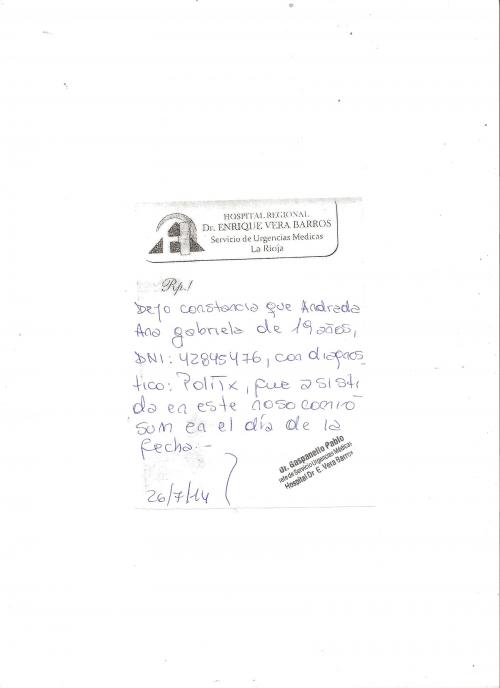 HOSPITAL REGIONAL
Dr. ENRIQUE VERA BARROS
Servicio de Urgencias Medicas
La Rioja
Rp.!
Dejo constancia que Andrada
Ana gabriela de 19 años,
DNI: 42845476, con diagnos
tico: PoliTx, fue asisti
da en este nosocomio
en el día de la
fecha.-
26/7/14
Dr. Gaspanello Pablo
Jefe de Servicio Urgencias Médicas
Hospital Dr. E. Vera Barros